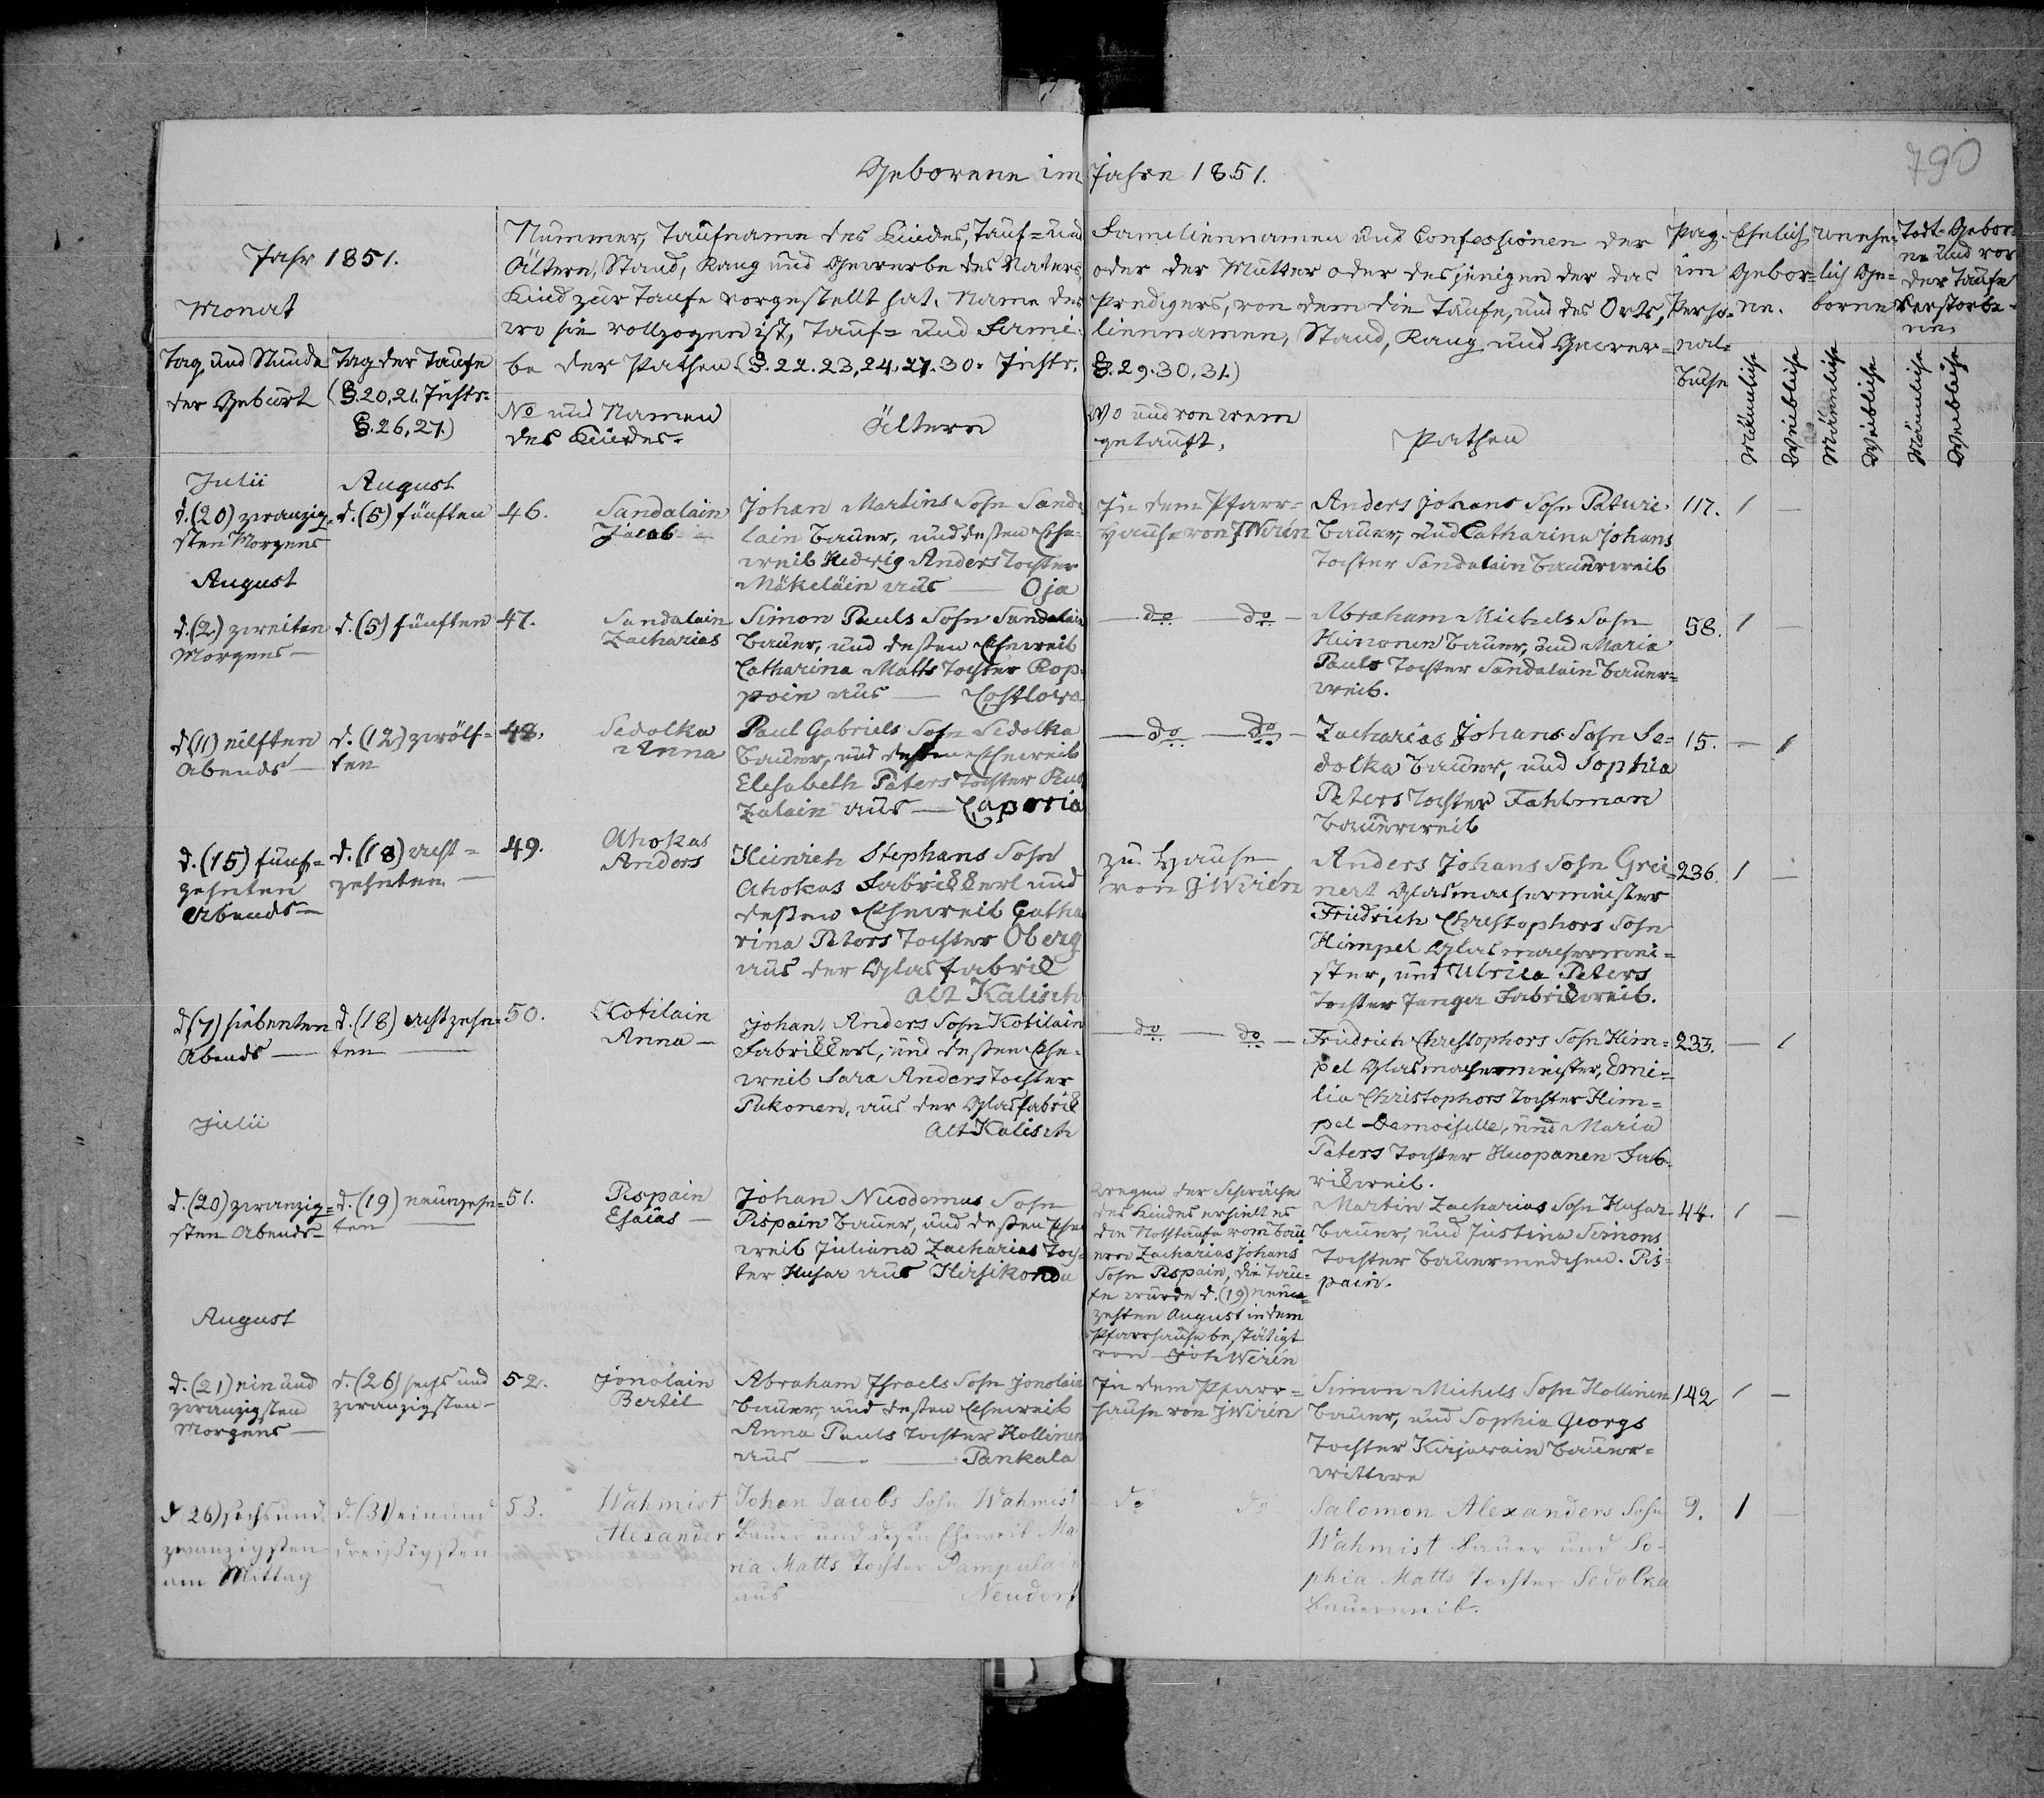 Geborene im Jahre 1851.
790
Jahr 1851.
Monat
Tag und Stunde
der Geburt
Tag der Taufe
(§.20,21. Instr.
§.26,27.)
Nummer, Taufname des Kindes, Tauf= und Familiennamen und Confessionen der
Ältern, Stand, Rang und Gewerbe des Vaters, oder der Mutter oder desjenigen der das
Kind zur Taufe vorgestellt hat. Name des Predigers, von dem die Taufe, und des Orts,
wo sie vollzogen ist, Tauf= und Familiennamen, Stand, Rang und Gewer=
be der Pathen. (§.22.23,24,27.30. Instr. §.29.30,31.)
No und Namen
des Kindes.
Ältern
Wo und von wem
getauft.
Pathen
Pag.
im
Perso=
nal=
buche
Ehelich
Gebor=
ne.
Unehe=
lich Ge=
borne
Todt=Gebor=
ne und vor
der Taufe
Verstorbe=
ne.
Männliche
Weibliche
Männliche
Weibliche
Männliche
Weibliche
Julii
August
d.(20) zwanzig=
sten Morgens
d. (5) fünften
46.
Sandalain
Jacob
Johan Martins Sohn Sanda
lain Bauer, und deßen Ehe=
weib Hedwig Anders Tochter
Mäkeläin aus — Oja
In dem Pfarr=
hause von J Wirén
Anders Johans Sohn Paturi
Bauer, und Catharina Johans
Tochter Sandalain Bauerweib
117. 1 —
August
d.(2) zweiten
Morgens —
d. (5) fünften
47.
Sandalain
Zacharias
Simon Pauls Sohn Sandalain
Bauer, und deßen Eheweib
Catharina Matts Tochter Rop=
poin aus — Costlowa
— do — do —
Abraham Michels Sohn
Heinonen Bauer, und Maria
Pauls Tochter Sandalain Bauer=
weib.
58. 1 —
d(11) eilften
Abends —
d. (12) zwölf=
ten
48.
Sedolka
Anna
Paul Gabriels Sohn Sedolka
Bauer, und deßen Eheweib
Elisabeth Päters Tochter
Zalain aus — Caporia
— do — do —
Zacharias Johans Sohn Se=
dolka Bauer, und Sophia
Peters Tochter Fahlman
Bauerweib
15. — 1
d. (15) fünf=
zehnten
Abends —
d. (18) acht=
zehnten —
49.
Ahokas
Anders
Heinrich Stephans Sohn
Ahokas Fabrikkerl und
deßen Eheweib Catha
rina Peters Tochter Oberg
aus der Glasfabrik
Alt Kalisch
zu Hause
von J Wirén
Anders Johans Sohn Grei=
nert Glasmachermeister
Friedrich Christophors Sohn
Himpel Glasmachermei=
ster, und Ulrica Peters
Tochter Janger Fabrikweib.
236. 1 —
d(7) siebenten
Abends —
d. (18) achtzehn=
ten —
50.
Kotilain
Anna —
Johan Anders Sohn Kotilain
Fabrikkerl, und deßen Ehe=
weib Sara Anders Tochter
Pukonen, aus der Glasfabrik
Alt Kalisch
— do — do —
Friedrich Christophors Sohn Him=
pel Glasmachermeister, Emi=
lia Christophors Tochter Him=
pel Demoiselle, und Maria
Päters Tochter Huopanen Fab=
rikweib.
233. — 1
Julii
d. (20) zwanzig=
sten Abends —
d. (19) neunzehn=
ten —
51.
Pispain
Esaias —
Johan Nicodemus Sohn
Pispain Bauer, und deßen Ehe
weib Juliana Zacharias Toch=
ter Husar aus Hirsikondu
Wegen der Schwäche
des Kindes erhielt es
die Nothtaufe vom Bau
eren Zacharias Johans
Sohn Pispain, die Tau=
fe wurde d. (19) neun=
zehten August in dem
Pfarrhause bestätigt
von Joh Wirén
Martin Zacharias Sohn Husar
Bauer, und Justina Simons
Tochter Bauermedchen. Pis=
pain.
44. 1 —
August
d. (21) ein und
zwanzigsten
Morgens —
d. (26) sechs und
zwanzigsten —
52.
Jonolain
Bertil
Abraham Israels Sohn Jonolain
Bauer, und deßen Eheweib
Anna Pauls Tochter Hollinen
aus — Pankala
In dem Pfarr=
hause von J Wirén
Simon Michels Sohn Hollinen
Bauer, und Sophia Georgs
Tochter Kirjawain Bauer=
wittwe
142 1 —
d 26) sechs und
zwanzigsten
am Mittag
d. (31) ein und
dreißigsten
53.
Wahmist
Alexander
Johan Jacobs Sohn Wahmist
Bauer und deßen Eheweib Ma
ria Matts Tochter Pampulain
aus Neudorf
do do
Salomon Alexanders Sohn
Wahmist Bauer und So=
phia Matts Tochter Sedolka
Bauerweib.
9. 1 —